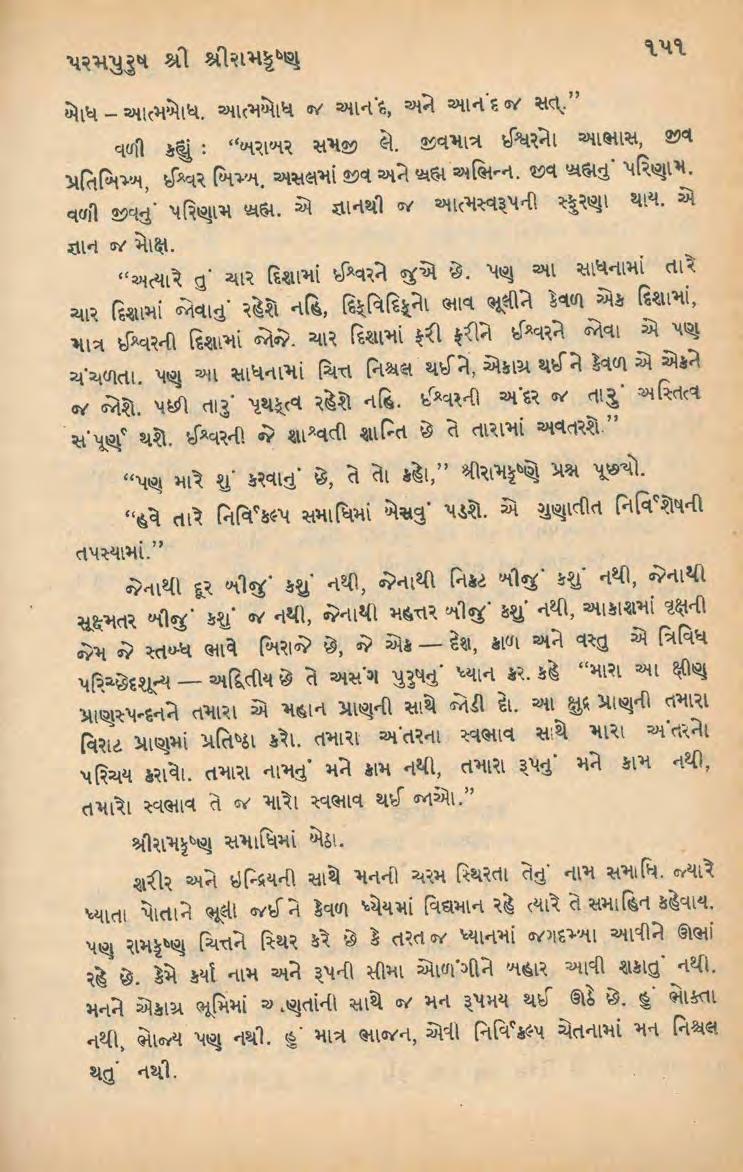 પરમપુરુષ શ્રી શ્રીરામકૃષ્ણ
૧૫૧
બોધ – આત્મબોધ. આત્મબોધ જ આનંદ, અને આનંદ જ સત્.”
વળી કહ્યું : “બરાબર સમજી લે. જીવમાત્ર ઈશ્વરનો આભાસ, જીવ
પ્રતિબિમ્બ, ઈશ્વર બિમ્બ. અસલમાં જીવ અને બ્રહ્મ અભિન્ન. જીવ બ્રહ્મનું પરિણામ.
વળી જીવનું પરિણામ બ્રહ્મ. એ જ્ઞાનથી જ આત્મસ્વરૂપની સ્ફુરણા થાય. એ
જ્ઞાન જ મોક્ષ.
“અત્યારે તું ચાર દિશામાં ઈશ્વરને જુએ છે. પણ આ સાધનામાં તારે
ચાર દિશામાં જોવાનું રહેશે નહિ, દિક્‌વિદિક્‌નો ભાવ ભૂલીને કેવળ એક દિશામાં,
માત્ર ઈશ્વરની દિશામાં જોજે. ચાર દિશામાં ફરી ફરીને ઈશ્વરને જોવા એ પણ
ચંચળતા. પણ આ સાધનામાં ચિત્ત નિશ્ચલ થઈને, એકાગ્ર થઈને કેવળ એ એકને
જ જોશે. પછી તારું પૃથક્ત્વ રહેશે નહિ. ઈશ્વરની અંદર જ તારું અસ્તિત્વ
સંપૂર્ણ થશે. ઈશ્વરની જે શાશ્વતી શાન્તિ છે તે તારામાં અવતરશે.”
“પણ મારે શું કરવાનું છે, તે તો કહો,” શ્રીરામકૃષ્ણે પ્રશ્ન પૂછયો.
“હવે તારે નિર્વિકલ્પ સમાધિમાં બેસવું પડશે. એ ગુણાતીત નિર્વિશેષની
તપસ્યામાં.”
જેનાથી દૂર બીજું કશું નથી, જેનાથી નિકટ બીજું કશું નથી, જેનાથી
સૂક્ષ્મતર બીજું કશું જ નથી, જેનાથી મહત્તર બીજું કશું નથી, આકાશમાં વૃક્ષની
જેમ જે સ્તબ્ધ ભાવે બિરાજે છે, જે એક — દેશ, કાળ અને વસ્તુ એ ત્રિવિધ
પરિચ્છેદશૂન્ય — અદ્વિતીય છે તે અસંગ પુરુષનું ધ્યાન કર. કહે “મારા આ ક્ષીણ
પ્રાણસ્પન્દનને તમારા એ મહાન પ્રાણની સાથે જોડી દો. આ ક્ષુદ્ર પ્રાણની તમારા
વિરાટ પ્રાણમાં પ્રતિષ્ઠા કરો. તમારા અંતરના સ્વભાવ સાથે મારા અંતરનો
પરિચય કરાવો. તમારા નામનું મને કામ નથી, તમારા રૂપનું મને કામ નથી,
તમારો સ્વભાવ તે જ મારો સ્વભાવ થઈ જાઓ.”
શ્રીરામકૃષ્ણ સમાધિમાં બેઠા.
શરીર અને ઇન્દ્રિયની સાથે મનની ચરમ સ્થિરતા તેનું નામ સમાધિ. જ્યારે
ધ્યાતા પોતાને ભૂલી જઈને કેવળ ધ્યેયમાં વિદ્યમાન રહે ત્યારે તે સમાહિત કહેવાય.
પણ રામકૃષ્ણ ચિત્તને સ્થિર કરે છે કે તરત જ ધ્યાનમાં જગદમ્બા આવીને ઊભાં
રહે છે. કેમે કર્યા નામ અને રૂપની સીમા ઓળંગીને બહાર આવી શકાતું નથી.
મનને એકાગ્ર ભૂમિમાં સાથે જ મન રૂપમય થઈ ઊઠે છે. હું ભોક્તા
નથી, ભોજ્ય પણ નથી. હું માત્ર ભાજન, એવી નિર્વિકલ્પ ચેતનામાં મન નિશ્ચલ
થતું નથી.